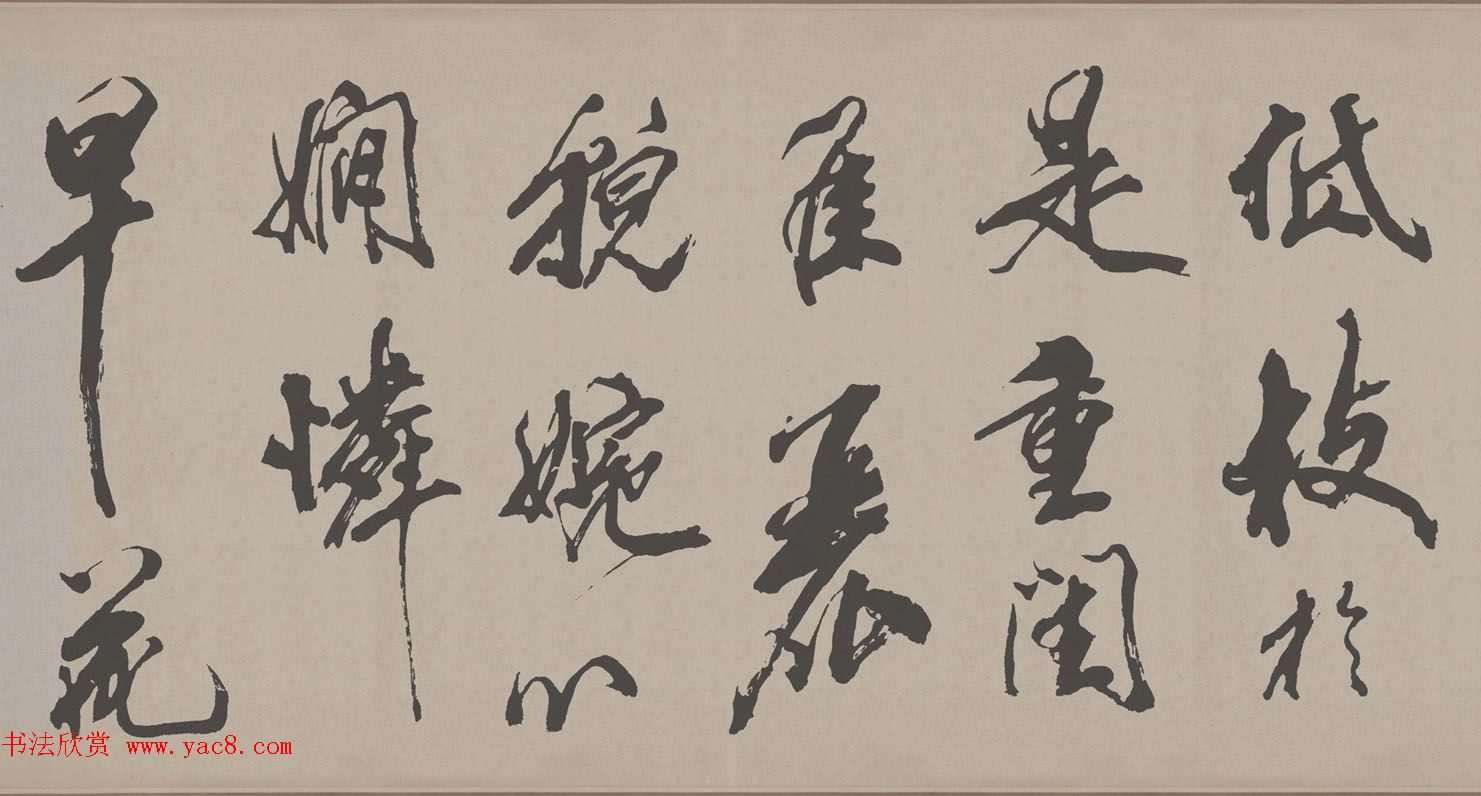 低枝於
是重閨
佳麗
貌婉心
嫻憐
早花
书法欣赏 www.yac8.com